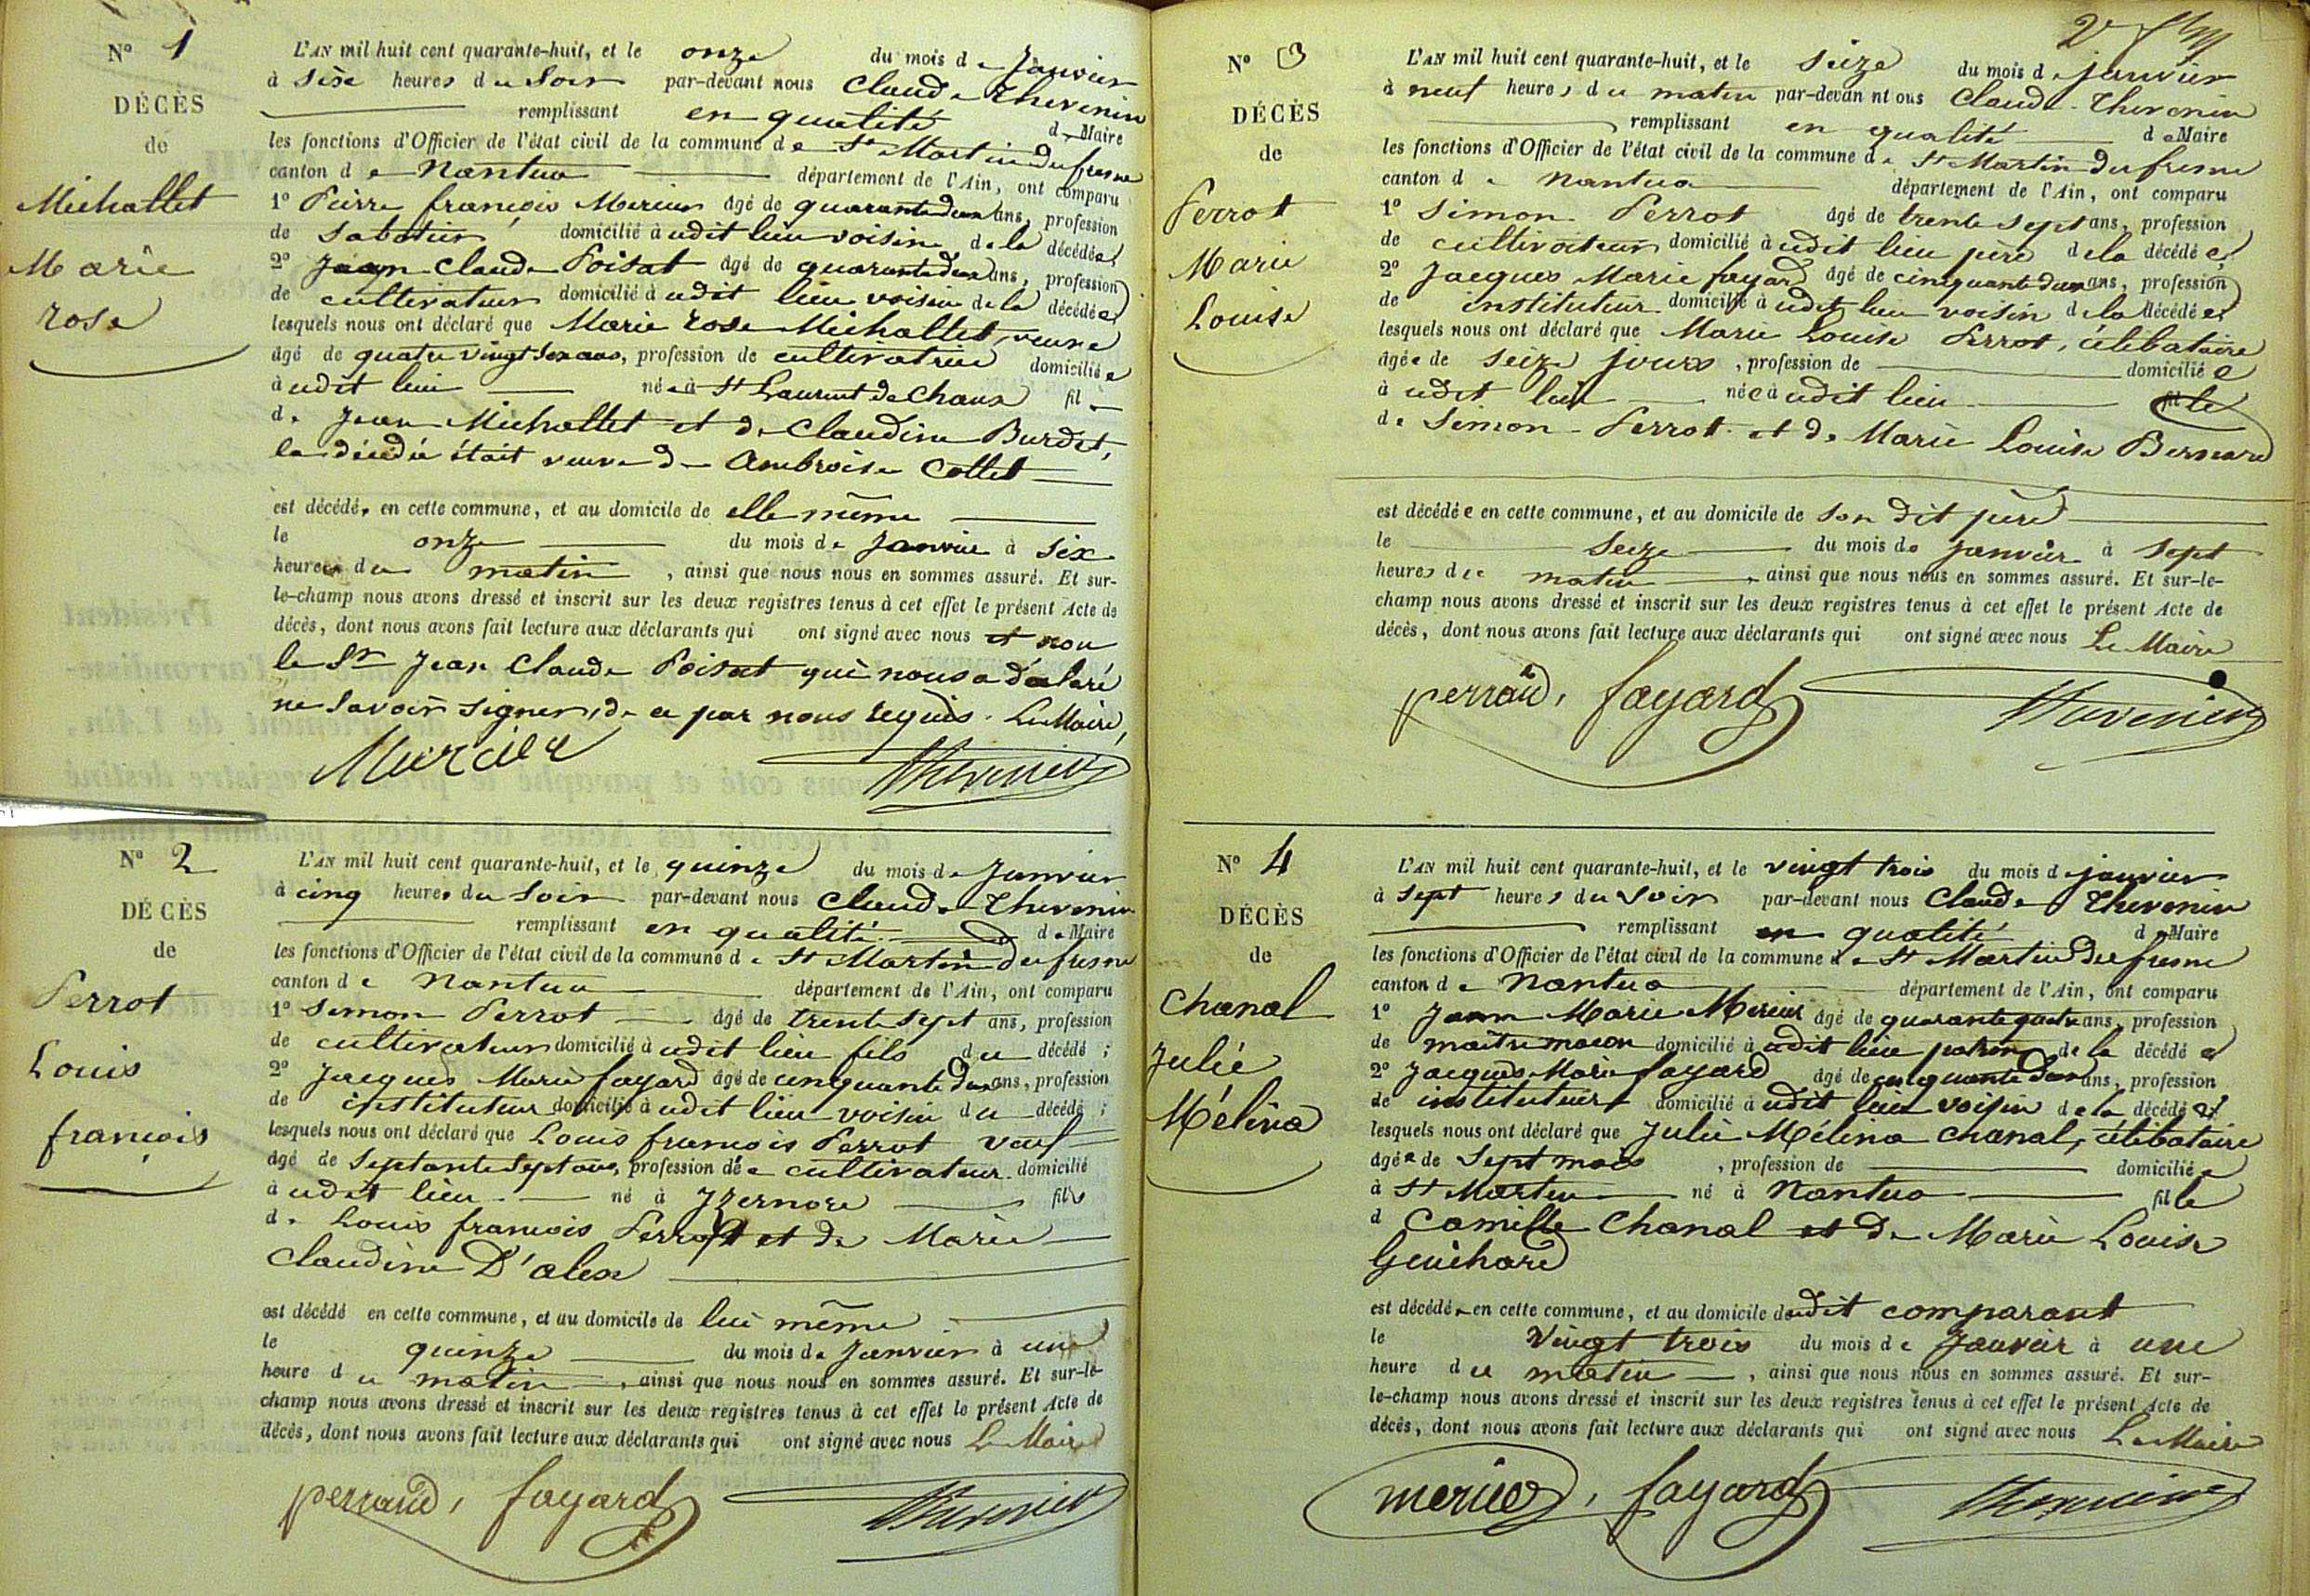 N° 1
DÉCÈS
de
Michallet
Marie
rose
L'AN mil huit cent quarante-huit, et le onze du mois de Janvier
à sise heures du Soir par-devant nous Claude Thevenin
remplissant en qualité de Maire
les fonctions d'Officier de l'état civil de la commune de St Martin du fresne
canton de Nantua département de l'Ain, ont comparu
1° Pierre françois Mercier âgé de quarante deux ans, profession
de Sabotier domicilié à udit lieu voisin de la décédée,
2° Jean Claude Poisat âgé de quarante deux ans, profession
de cultivateur domicilié à udit lieu voisin de la décédée
lesquels nous ont déclaré que Marie rose Michallet, veuve
âgé de quatre vingt ans, profession de cultivatrice domiciliée
à udit lieu née à St Laurent de Chaux fil
de Jean Michallet et de Claudine Burdet,
la décédé était veuve de Ambroise Collet
est décédée en cette commune, et au domicile de elle même
le onze du mois de Janvier à six
heures du matin, ainsi que nous nous en sommes assuré. Et sur-
le-champ nous avons dressé et inscrit sur les deux registres tenus à cet effet le présent Acte de
décès, dont nous avons fait lecture aux déclarants qui ont signé avec nous et non
le Sr Jean Claude Poisat qui nous a déclaré
ne Savoir Signer, de ce par nous requis. Le Maire,
Mercier Thevenin
N° 2
DÉCÈS
de
Perrot
Louis
françois
L'AN mil huit cent quarante-huit, et le quinze du mois de Janvier
à cinq heures du Soir par-devant nous Claude Thevenin
remplissant en qualité de Maire
les fonctions d'Officier de l'état civil de la commune de St Martin du fresne
canton de Nantua département de l'Ain, ont comparu
1° Simon Perrot âgé de trente sept ans, profession
de cultivateur domicilié à udit lieu fils du décédé ;
2° Jacques Marie fayard âgé de cinquante deux ans, profession
de instituteur domicilié à udit lieu voisin du décédé ;
lesquels nous ont déclaré que Louis françois Perrot veuf
âgé de Septante Sept ans, profession de cultivateur domicilié
à udit lieu né à Yzernore fils
de Louis françois Perrot et de Marie
Claudine D'alex
est décédé en cette commune, et au domicile de lui même
le quinze du mois de Janvier à une
heure du matin, ainsi que nous nous en sommes assuré. Et sur-le-
champ nous avons dressé et inscrit sur les deux registres tenus à cet effet le présent Acte de
décès, dont nous avons fait lecture aux déclarants qui ont signé avec nous Le Maire
perraud, fayard Thevenin
N° 3
DÉCÈS
de
Perrot
Marie
Louise
L'AN mil huit cent quarante-huit, et le Seize du mois de janvier
à neuf heures du matin par-devan nt ous Claude Thevenin
remplissant en qualité de Maire
les fonctions d'Officier de l'état civil de la commune de St Martin du fresne
canton de Nantua département de l'Ain, ont comparu
1° Simon Perrot âgé de trente sept ans, profession
de cultivateur domicilié à udit lieu père de la décédée,
2° Jacques Marie fayard âgé de cinquante deux ans, profession
de instituteur domicilié à udit lieu voisin de la décédée
lesquels nous ont déclaré que Marie Louise Perrot, célibataire
âgée de Seize jours, profession de domiciliée
à udit lieu née à udit lieu fille
de Simon Perrot et de Marie Louise Bernard
est décédée en cette commune, et au domicile de Son dit père
le Seize du mois de janvier à Sept
heures du matin, ainsi que nous nous en sommes assuré. Et sur-le-
champ nous avons dressé et inscrit sur les deux registres tenus à cet effet le présent Acte de
décès, dont nous avons fait lecture aux déclarants qui ont signé avec nous Le Maire
perraud, fayard Thevenin
N° 4
DÉCÈS
de
Chanal
Julie
Mélina
L'AN mil huit cent quarante-huit, et le vingt trois du mois de janvier
à Sept heures du Soir par-devant nous Claude Thevenin
remplissant en qualité de Maire
les fonctions d'Officier de l'état civil de la commune de St Martin du fresne
canton de Nantua département de l'Ain, ont comparu
1° Jean Marie Mercier âgé de quarante quatre ans, profession
de maître maçon domicilié à udit lieu patron de la décédée
2° Jacques Marie fayard âgé de cinquante deux ans, profession
de instituteur domicilié à udit lieu voisin de la décédée
lesquels nous ont déclaré que Julie Mélina Chanal, célibataire
âgée de Sept mois, profession de domiciliée
à St Martin né à Nantua fille
d Camille Chanal et de Marie Louise
Guichard
est décédée en cette commune, et au domicile dudit comparant
le Vingt trois du mois de Janvier à une
heure du matin, ainsi que nous nous en sommes assuré. Et sur-
le-champ nous avons dressé et inscrit sur les deux registres tenus à cet effet le présent Acte de
décès, dont nous avons fait lecture aux déclarants qui ont signé avec nous Le Maire
mercier, fayard Thevenin